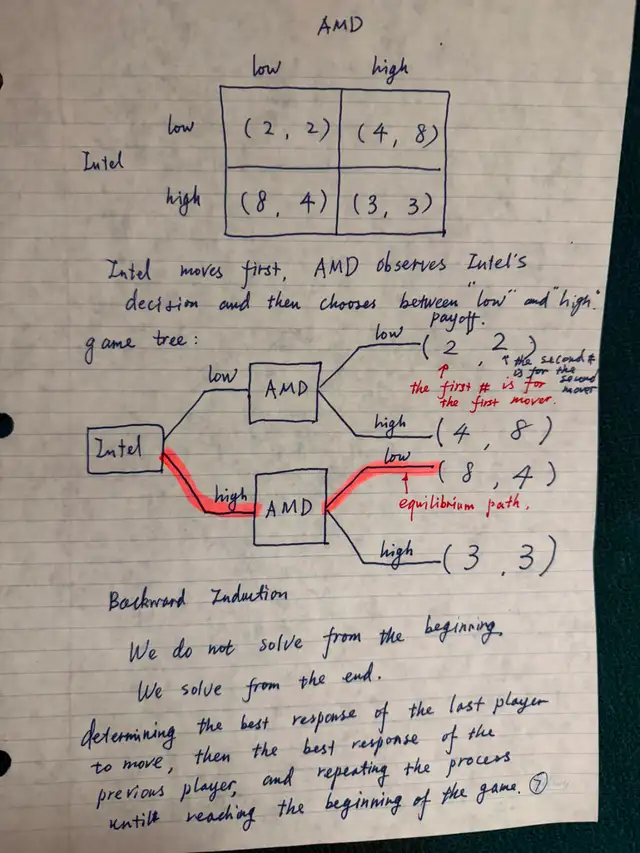 AMD
low high
low (2, 2) (4, 8)
Intel
high (8, 4) (3, 3)
Intel moves first, AMD observes Intel's
decision and then chooses between "low" and "high".
game tree:
payoff.
low (2, 2)
the second # is for the second mover
the first # is for the first mover.
low AMD
high (4, 8)
Intel
low (8, 4)
equilibrium path.
high AMD
high (3, 3)
Backward Induction
We do not solve from the beginning
We solve from the end.
determining the best response of the last player
to move, then the best response of the
previous player, and repeating the process
until reaching the beginning of the game. 7